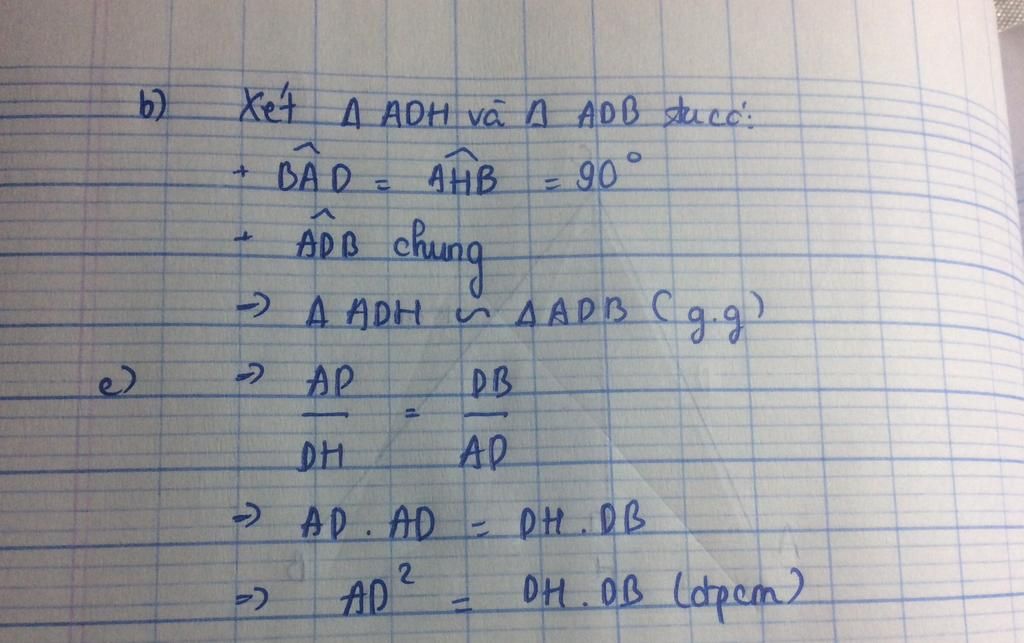 b) Xét Δ ADH và Δ ADB ta có:
+ BÂD = AĤB = 90°
+ AD̂B chung
=> Δ ADH ∽ Δ ADB (g.g)
c) => AD/DH = DB/AD
=> AD . AD = DH . DB
=> AD² = DH . DB (đpcm)